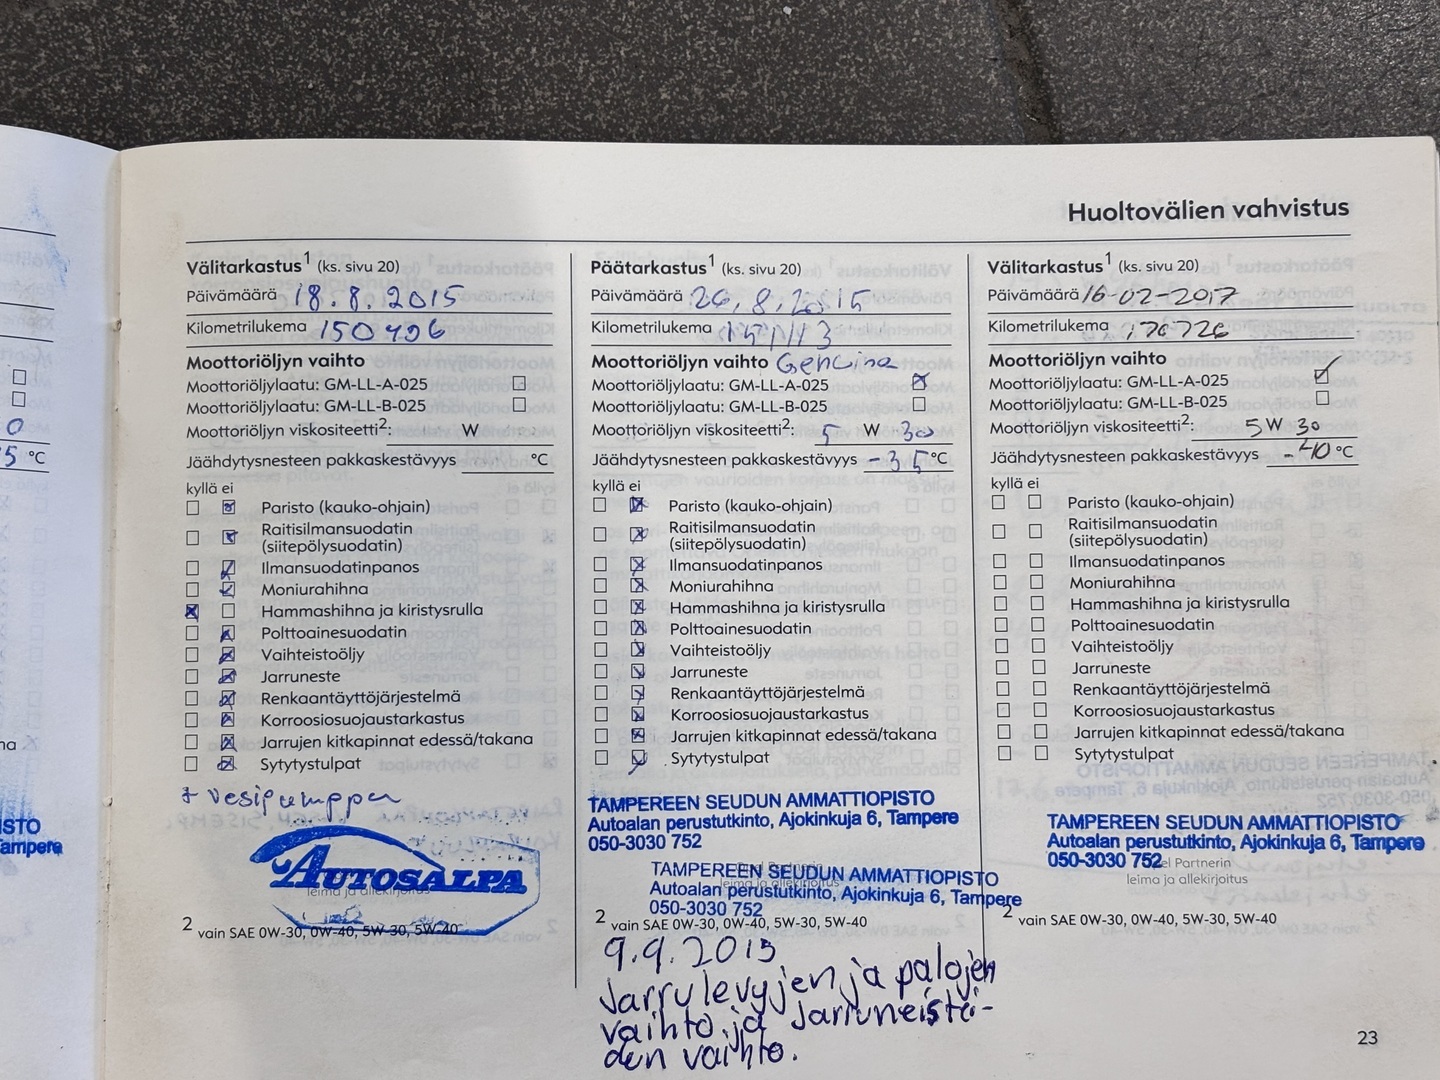 Huoltovälien vahvistus
Välitarkastus¹ (ks. sivu 20)
Päivämäärä 18.8.2015
Kilometrilukema 150496
Moottoriöljyn vaihto
Moottoriöljylaatu: GM-LL-A-025
Moottoriöljylaatu: GM-LL-B-025
Moottoriöljyn viskositeetti²: W
Jäähdytysnesteen pakkaskestävyys °C
kyllä ei
Paristo (kauko-ohjain)
Raitisilmansuodatin
(siitepölysuodatin)
Ilmansuodatinpanos
Moniurahihna
Hammashihna ja kiristysrulla
Polttoainesuodatin
Vaihteistoöljy
Jarruneste
Renkaantäyttöjärjestelmä
Korroosiosuojaustarkastus
Jarrujen kitkapinnat edessä/takana
Sytytystulpat
+ vesipumppu
AUTOSALPA
leima ja allekirjoitus
2 vain SAE 0W-30, 0W-40, 5W-30, 5W-40
Päätarkastus¹ (ks. sivu 20)
Päivämäärä 26.8.2015
Kilometrilukema
Moottoriöljyn vaihto
Moottoriöljylaatu: GM-LL-A-025
Moottoriöljylaatu: GM-LL-B-025
Moottoriöljyn viskositeetti²: 5 W 30
Jäähdytysnesteen pakkaskestävyys -35 °C
kyllä ei
Paristo (kauko-ohjain)
Raitisilmansuodatin
(siitepölysuodatin)
Ilmansuodatinpanos
Moniurahihna
Hammashihna ja kiristysrulla
Polttoainesuodatin
Vaihteistoöljy
Jarruneste
Renkaantäyttöjärjestelmä
Korroosiosuojaustarkastus
Jarrujen kitkapinnat edessä/takana
Sytytystulpat
TAMPEREEN SEUDUN AMMATTIOPISTO
Autoalan perustutkinto, Ajokinkuja 6, Tampere
050-3030 752
TAMPEREEN SEUDUN AMMATTIOPISTO
Autoalan perustutkinto, Ajokinkuja 6, Tampere
050-3030 752
2 vain SAE 0W-30, 0W-40, 5W-30, 5W-40
9.9.2015
Jarrulevyjen ja palojen
vaihto ja Jarrunestei-
den vaihto.
Välitarkastus¹ (ks. sivu 20)
Päivämäärä 16-02-2017
Kilometrilukema 176726
Moottoriöljyn vaihto
Moottoriöljylaatu: GM-LL-A-025
Moottoriöljylaatu: GM-LL-B-025
Moottoriöljyn viskositeetti²: 5 W 30
Jäähdytysnesteen pakkaskestävyys -40 °C
kyllä ei
Paristo (kauko-ohjain)
Raitisilmansuodatin
(siitepölysuodatin)
Ilmansuodatinpanos
Moniurahihna
Hammashihna ja kiristysrulla
Polttoainesuodatin
Vaihteistoöljy
Jarruneste
Renkaantäyttöjärjestelmä
Korroosiosuojaustarkastus
Jarrujen kitkapinnat edessä/takana
Sytytystulpat
TAMPEREEN SEUDUN AMMATTIOPISTO
Autoalan perustutkinto, Ajokinkuja 6, Tampere
050-3030 752 el Partnerin
leima ja allekirjoitus
2 vain SAE 0W-30, 0W-40, 5W-30, 5W-40
23